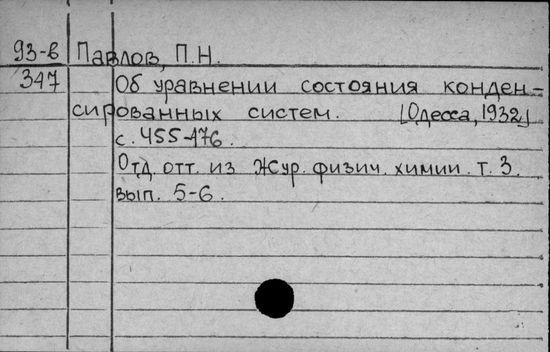 93-в Павлов, П.Н.
347 Об уравнении состояния конден=
сированных систем. [Одесса, 1932]
с. 455-476.
Отд. отт. из Жур. физич. химии. т. 3.
вып. 5-6.